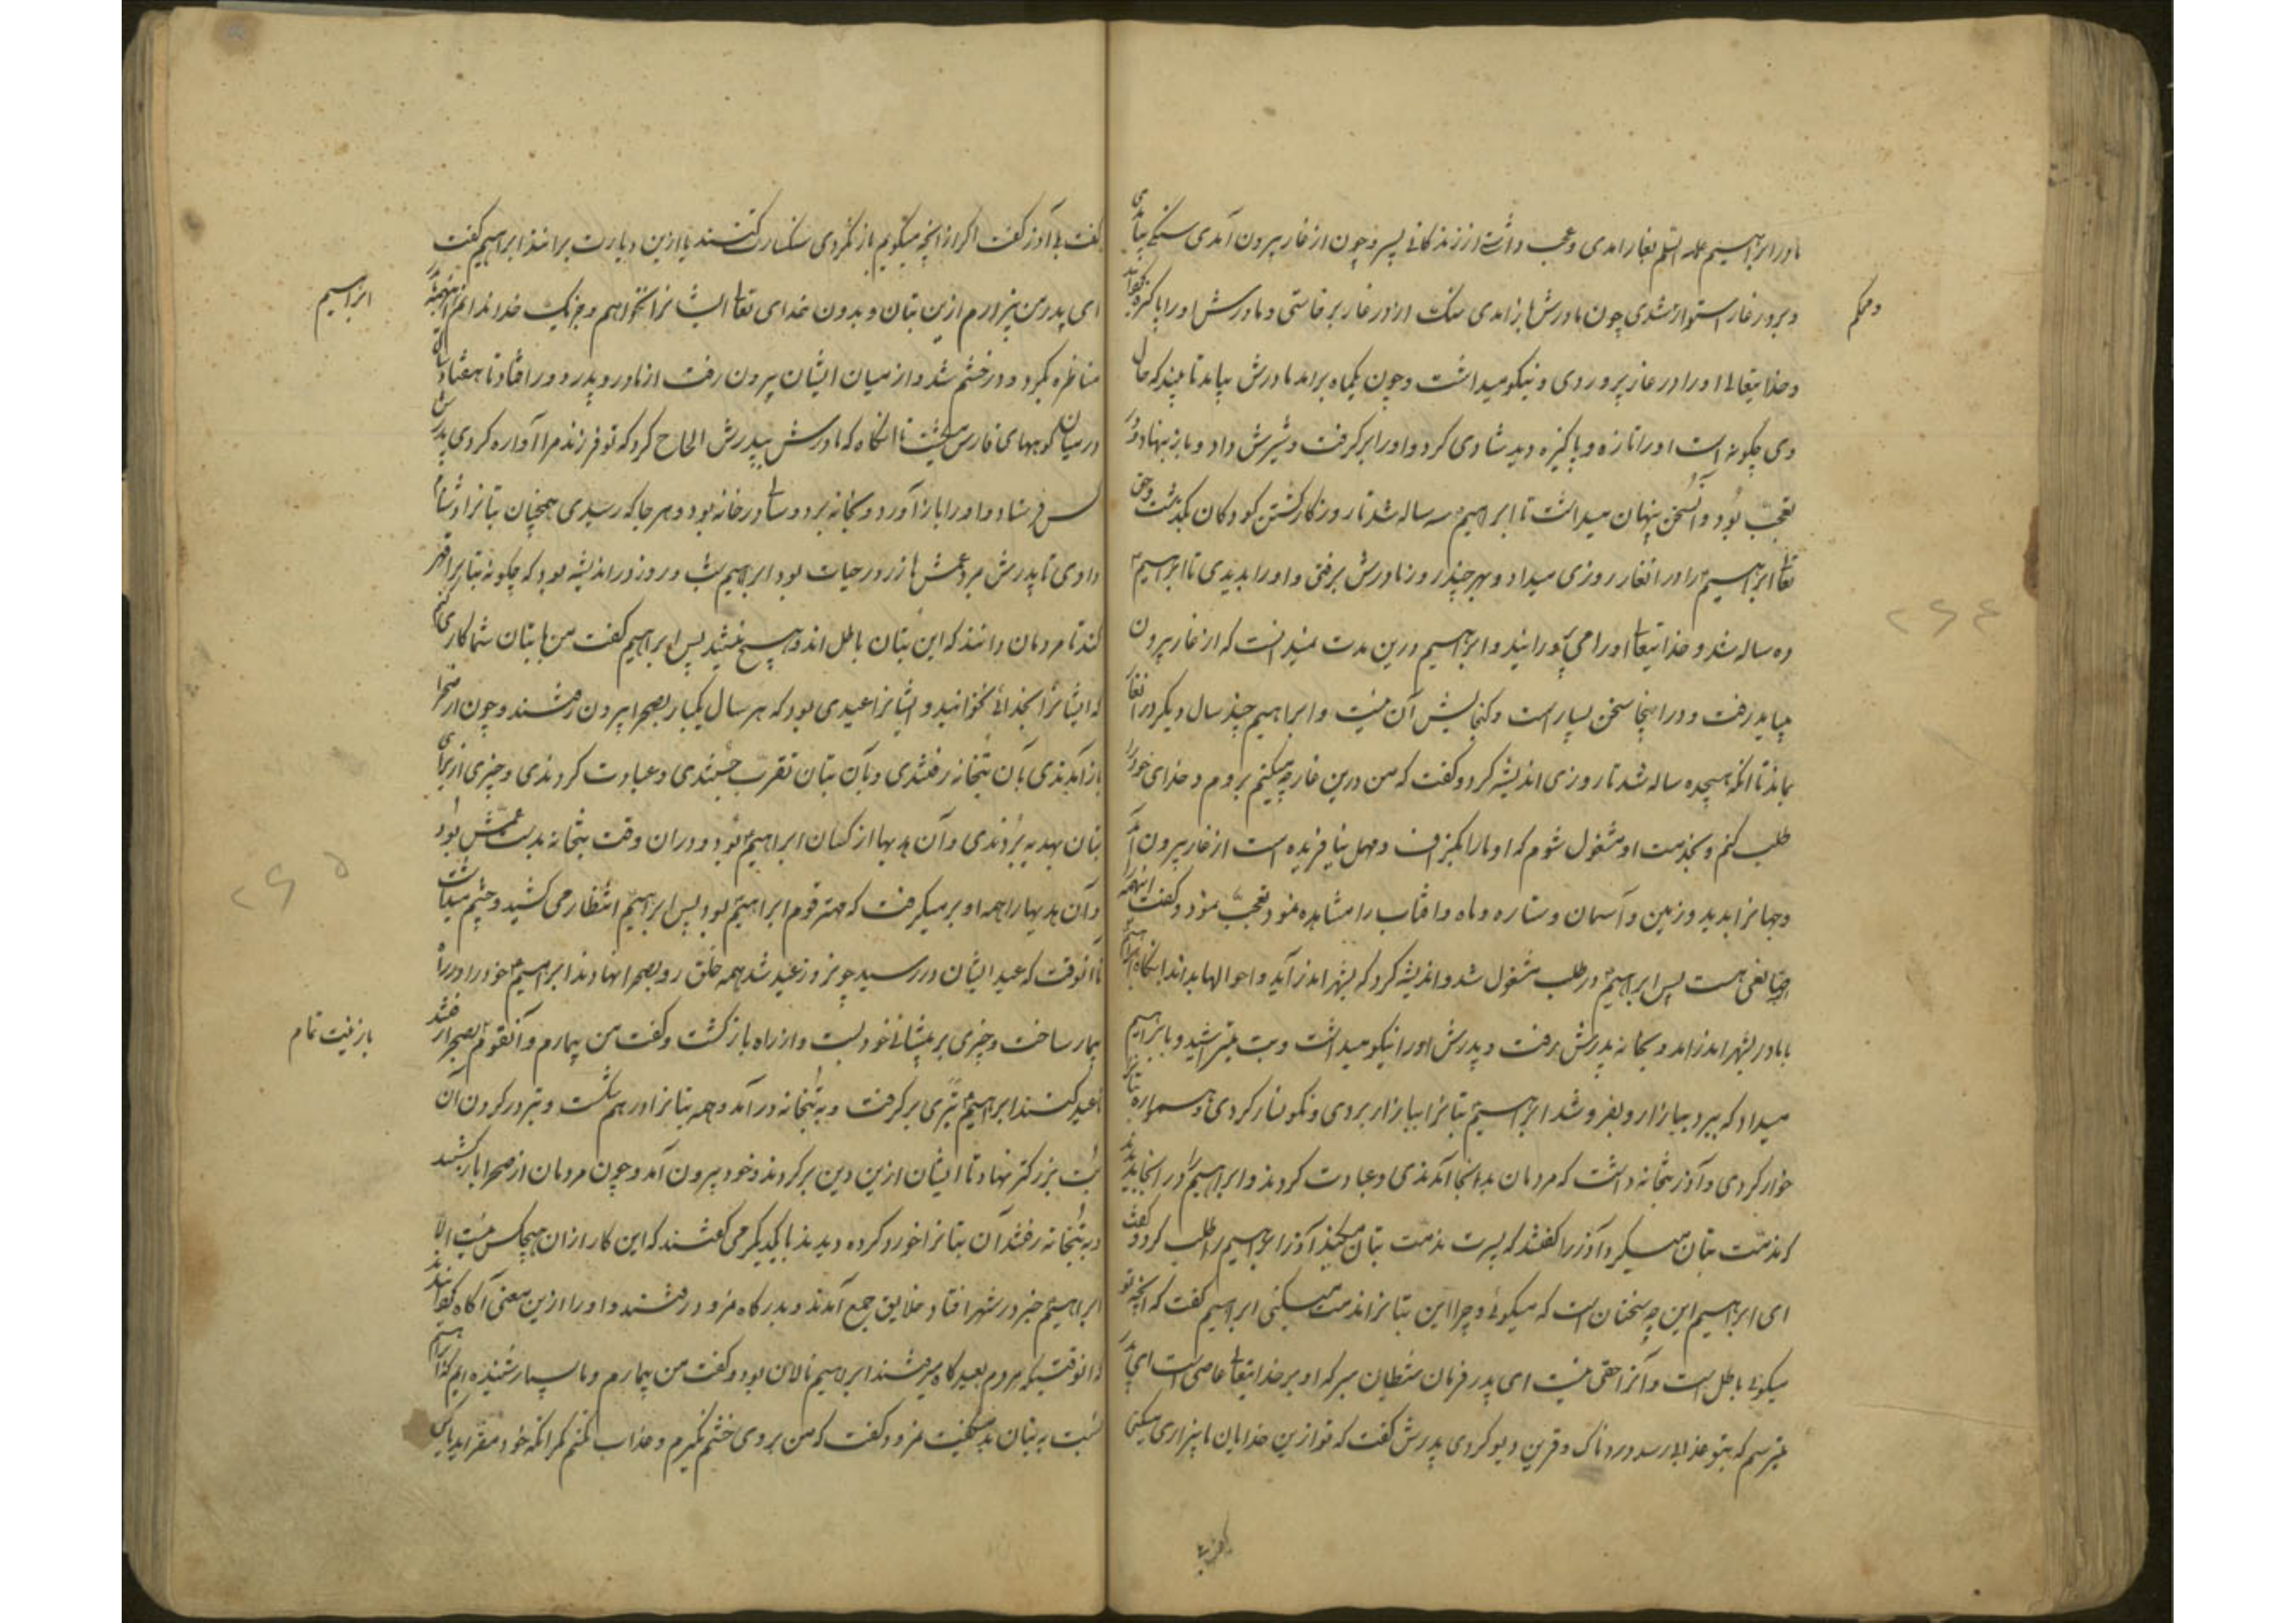 مادر ابراهیم علیه السلم بغار امدی و عجب داشتی از زندکانی پسر و چون از غار بیرون آمدی سنکی بیاوردی
و بر در غار استوار شدی چون مادرش باز امدی سنک از در غار برخاستی و مادرش او را پاکیزه
و محکم
و خدایتعالی او را در غار پروردی و نیکو میداشت و چون یکماه برامد مادرش بیامد تا ببیند که حال
وی چکونه است او را تازه و پاکیزه دید شادی کرد و او را بر کرفت و شیرش داد و باز بنهاد و در
تعجب بود و آن سخن پنهان میداشت تا ابراهیم سه ساله شد تا روزکار کشتن کودکان بکذشت و حق
تعالی ابراهیم را در انغار روزی میداد و بهر چند روز مادرش برفتی و او را بدیدی تا ابراهیم
ده ساله شد و خدایتعالی او را می پرورانید و ابراهیم درین مدت نمیدانست که از غار بیرون
میباید رفت و در اینجا سخن بسیار است و کنجایش آن نیست و ابراهیم چند سال دیکر در انغار
بماند تا انکه هیجده ساله شد تا روزی اندیشه کرد و کفت که من درین غار چه میکنم بروم و خدای خود را
طلب کنم و بخدمت او مشغول شوم که او ما را بکزاف و مهمل نیافریده است از غار بیرون آمد
و جهانرا بدید و زمین و آسمان و ستاره و ماه و افتاب را مشاهده نمود تعجب نمود و کفت اینهمه را
صانعی هست پس ابراهیم در طلب مشغول شد و اندیشه کرد که بشهر اندر آید و احوالها بداند انکاه ابراهیم
با مادر بشهر اندر امد و بخانه پدرش برفت و پدرش او را نیکو میداشت و بت میتراشید و بابراهیم
میداد که ببرد ببازار و بفروشد ابراهیم بتانرا ببازار بردی و نکونسار کردی و همواره بتانرا
خوار کردی و آذر بتخانه داشت که مردمان بدانجا آمدندی و عبادت کردند و ابراهیم را در انجا بدیدند
که مذمت بتان میکرد آذر را کفتند که پسرت مذمت بتان میکند آذر ابراهیم را طلب کرد و کفت
ای ابراهیم این چه سخنان است که میکوئی و چرا این بتانرا مذمت میکنی ابراهیم کفت که انچه تو
میکوئی باطل است و آنرا حقی نیست ای پدر فرمان شیطان مبر که او بر خدایتعالی عاصی است ای پدر
میترسم که بتو عذابی رسد دردناک و قرین دیو کردی پدرش کفت که تو از ین خدایان ما بیزاری میکنی
کفت بی آذر کفت اکر از انچه میکویم باز نکردی سنکسارت کنند یا ازین دیارت برانند ابراهیم کفت
ای پدر من بیزارم از ین بتان و بدون خدای تعالی ایشانرا نخواهم و جز یک خدا ندانم
ابراهیم
مناظره بکرد و در خشم شد و از میان ایشان بیرون رفت از مادر و پدر دور افتاد تا هفتاد سال
در میان کوههای فارس میکشت تا انکاه که مادرش بپدرش الحاح کرد که تو فرزند مرا آواره کردی پدرش
کس فرستاد و او را باز آورد و بخانه برد و سالی در خانه بود و هر جا که رسیدی همچنان بتانرا دشنام
دادی تا پدرش بمرد عمش هازر در حیات بود ابراهیم شب و روز در اندیشه بود که چکونه بتانرا قهر
کند تا مردمان دانند که این بتان باطل اند و هیچ نیستند پس ابراهیم کفت من با بتان شما کاری کنم
که ایشانرا بخدائی نخوانید و ایشانرا عیدی بود که هر سال یکبار بصحرا بیرون رفتند و چون از صحرا
باز آمدندی بآن بتخانه رفتندی و بآن بتان تقرب جستندی و عبادت کردندی و چیزی از برای
بتان بهدیه بردندی و آن هدیها از کسان ابراهیم بود و در ان وقت بتخانه بدست عمش بود
و آن هدیها را همه او بر میکرفت که مهتر قوم ابراهیم بود پس ابراهیم انتظار می کشید و چشم میداشت
تا آنوقت که عید ایشان در رسید چون روز عید شد همه خلق رو بصحرا نهادند ابراهیم خود را در راه
بیمار ساخت و چیزی بر پیشانی خود بست و از راه باز کشت و کفت من بیمارم و آنقوم بصحرا رفتند
تا عید کنند ابراهیم تبری بر کرفت و به بتخانه در آمد و همه بتانرا در هم شکست و تبر در کردن آن
بت بزرکتر نهاد تا ایشان ازین دین بر کردند و خود بیرون آمد و چون مردمان از صحرا باز کشتند
و به بتخانه رفتند آن بتانرا خورد کرده دیدند با یکدیکر می کفتند که این کار از ان هیچکس نیست الا
ابراهیم خبر در شهر افتاد و خلایق جمع آمدند و بدرکاه نمرود رفتند و او را ازین معنی آکاه کردانیدند
که انوقتیکه مردم بعیدکاه میرفتند ابراهیم نالان بود و کفت من بیمارم و ما بسیار شنیده ایم که ابراهیم
نسبت به بتان بد میکفت نمرود کفت که من بر وی خشم نکیرم و عذاب نکنم مکر انکه خود مقر اید